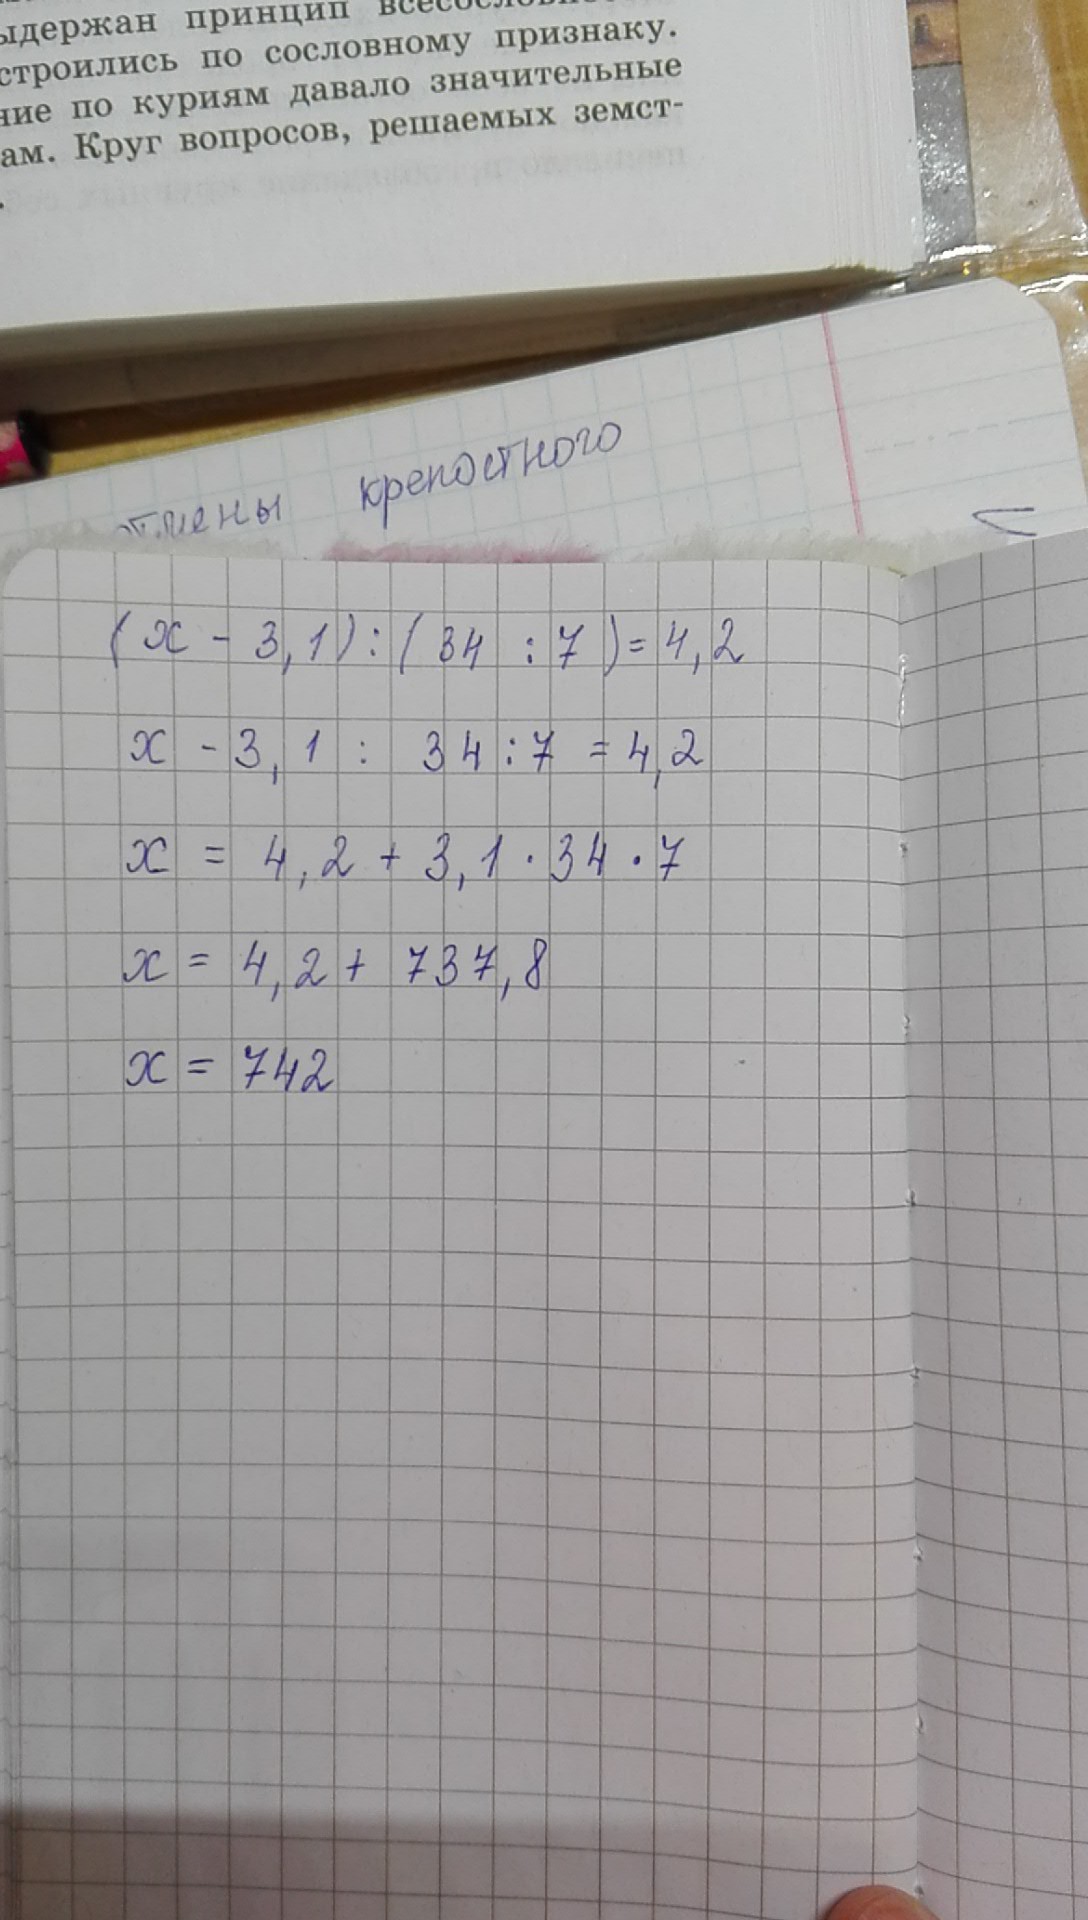 принцип
строились по сословному признаку.
по куриям давало значительные
ам. Круг вопросов, решаемых земст-
крепостного
(x - 3,1) : (34 : 7) = 4,2
x - 3,1 : 34 : 7 = 4,2
x = 4,2 + 3,1 · 34 · 7
x = 4,2 + 737,8
x = 742